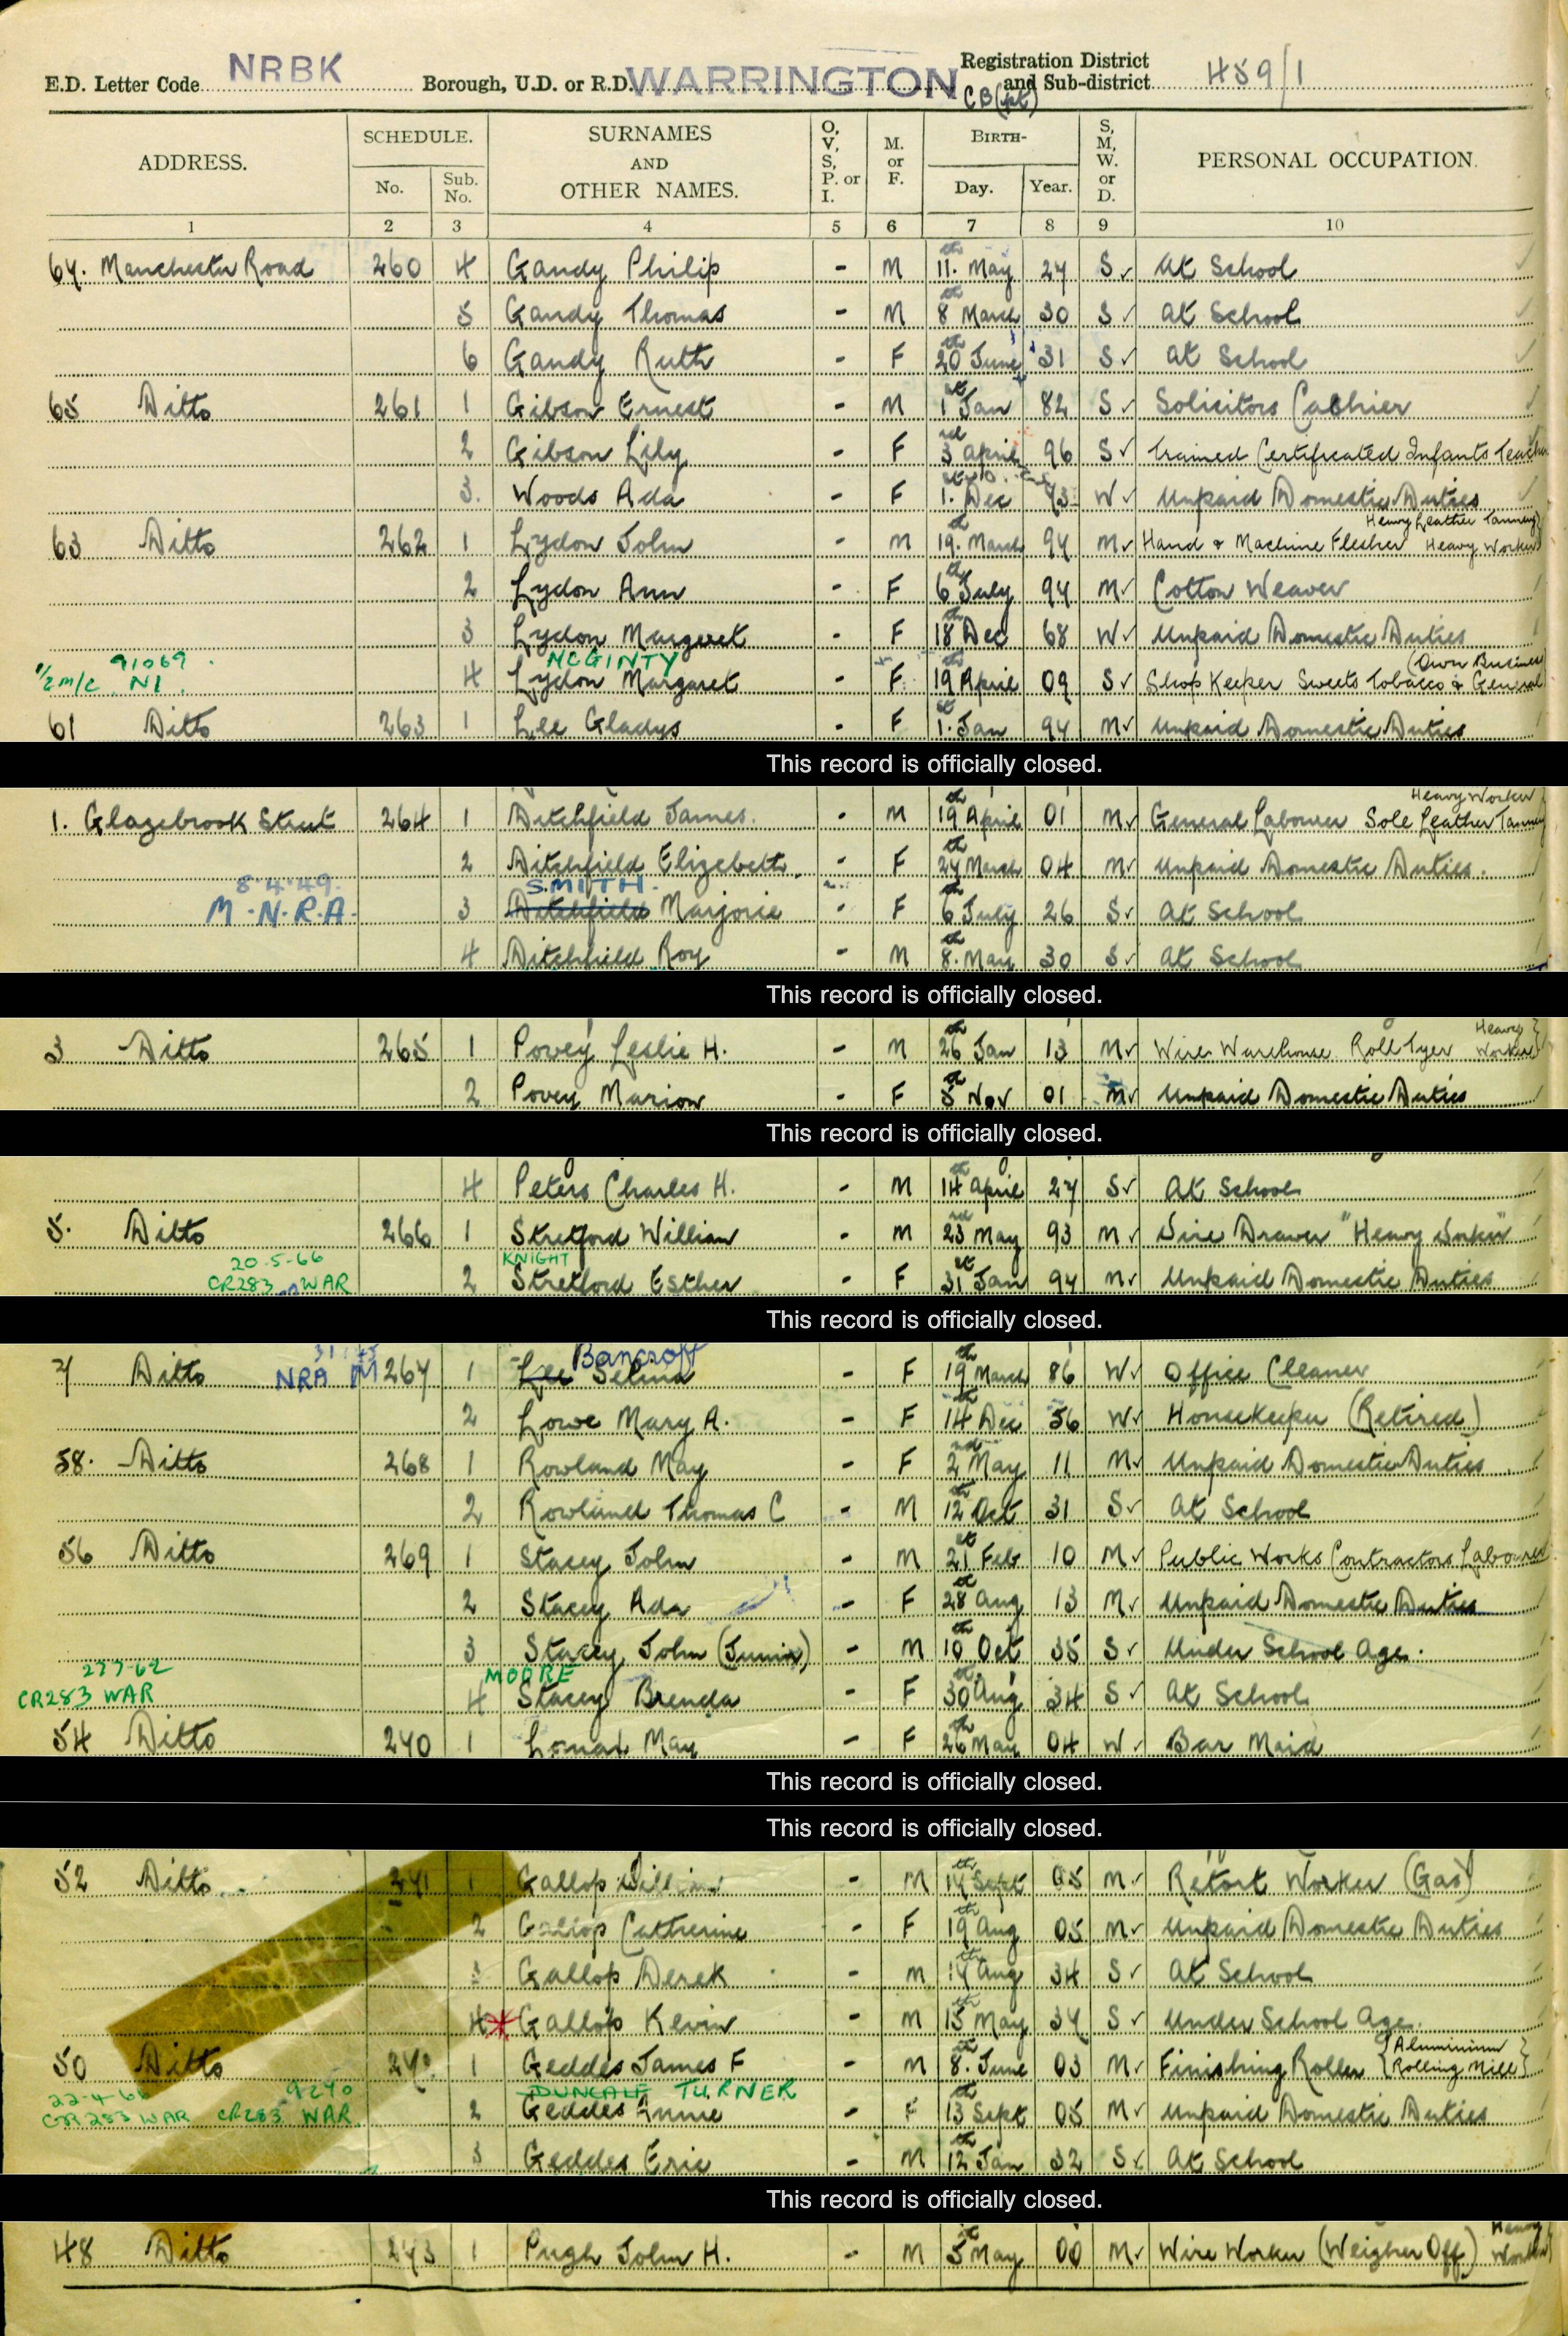 E.D. Letter Code NRBK Borough, U.D. or R.D. WARRINGTON CB (pt) Registration District and Sub-district 459/1
ADDRESS. SCHEDULE. No. Sub. No. SURNAMES AND OTHER NAMES. O, V, S, P. or I. M. or F. BIRTH- Day. Year. S, M, W. or D. PERSONAL OCCUPATION.
1 2 3 4 5 6 7 8 9 10
67. Manchester Road 260 4 Gandy Philip - M 11.th May 27 S ✓ At School ✓
5 Gandy Thomas - M 8th March 30 S ✓ At School ✓
6 Gandy Ruth - F 20th June 31 S ✓ At School ✓
65 Ditto 261 1 Gibson Ernest - M 1st Jan 82 S ✓ Solicitors Cashier
2 Gibson Lily - F 3rd April 96 S ✓ Trained Certificated Infants Teacher
3. Woods Ada - F 1. Dec 73 W ✓ Unpaid Domestic Duties
63 Ditto 262 1 Lydon John - M 19. March 97 M ✓ Hand & Machine Flesher Heavy Leather Tannery Heavy Worker
2 Lydon Ann - F 6th July 97 M ✓ Cotton Weaver
3 Lydon Margaret - F 18th Dec 68 W ✓ Unpaid Domestic Duties
91069 MCGINTY
1/2 M/C NI 4 Lydon Margaret - F 19th April 09 S ✓ Shop Keeper Sweets Tobacco & General (Own Business)
61 Ditto 263 1 Lee Gladys - F 1.st Jan 97 M ✓ Unpaid Domestic Duties
This record is officially closed.
1. Glazebrook Street 264 1 Ditchfield James. - M 19th April 01 M ✓ General Labourer Sole Leather Tannery Heavy Worker
2 Ditchfield Elizabeth - F 27th March 04 M ✓ Unpaid Domestic Duties.
8.4.49. SMITH.
M.N.R.A. 3 Ditchfield Marjorie - F 6th July 26 S ✓ At School
4 Ditchfield Roy - M 8.th May 30 S ✓ At School
This record is officially closed.
3 Ditto 265 1 Povey Leslie H. - M 26th Jan 13 M ✓ Wire Warehouse Roll Tyer Heavy Worker
2 Povey Marion - F 5th Nov 01 M ✓ Unpaid Domestic Duties
This record is officially closed.
4 Peters Charles H. - M 14th April 27 S ✓ At School
5. Ditto 266 1 Stretford William - M 23rd May 93 M ✓ Wire Drawer "Heavy Worker"
20-5-66 KNIGHT
CR283 WAR 2 Stretford Esther - F 31st Jan 97 M ✓ Unpaid Domestic Duties
This record is officially closed.
Bancroft
7 Ditto NRA M 267 1 Lee Selina - F 19th March 86 W ✓ Office Cleaner
2 Lowe Mary A. - F 14th Dec 56 W ✓ Housekeeper (Retired)
58. Ditto 268 1 Rowland May - F 2nd May 11 M ✓ Unpaid Domestic Duties
2 Rowland Thomas C - M 12th Oct 31 S ✓ At School
56 Ditto 269 1 Stacey John - M 21st Feb 10 M ✓ Public Works Contractors Labourer
2 Stacey Ada - F 28th Aug 13 M ✓ Unpaid Domestic Duties
3 Stacey John (Junior) - M 10th Oct 35 S ✓ Under School Age.
27-7-62 MOORE
CR283 WAR 4 Stacey Brenda - F 30th Aug 34 S ✓ At School
54 Ditto 270 1 Lomax May - F 26th May 04 W ✓ Bar Maid
This record is officially closed.
This record is officially closed.
52 Ditto 271 1 Gallop William - M 17th Sept 05 M ✓ Retort Worker (Gas)
2 Gallop Catherine - F 19th Aug 05 M ✓ Unpaid Domestic Duties
3 Gallop Derek - M 17th Aug 34 S ✓ At School
4 * Gallop Kevin - M 15th May 37 S ✓ Under School Age.
50 Ditto 1 Geddes James F - M 8.th June 03 M ✓ Finishing Roller {Aluminium Rolling Mill}
DUNCALF TURNER
CR283 WAR CR283 WAR 2 Geddes Annie - F 13th Sept 05 M ✓ Unpaid Domestic Duties
3 Geddes Eric - M 12th Jan 32 S ✓ At School
This record is officially closed.
48 Ditto 273 1 Pugh John H. - M 5th May 00 M ✓ Wire Worker (Weigher Off) Heavy Worker